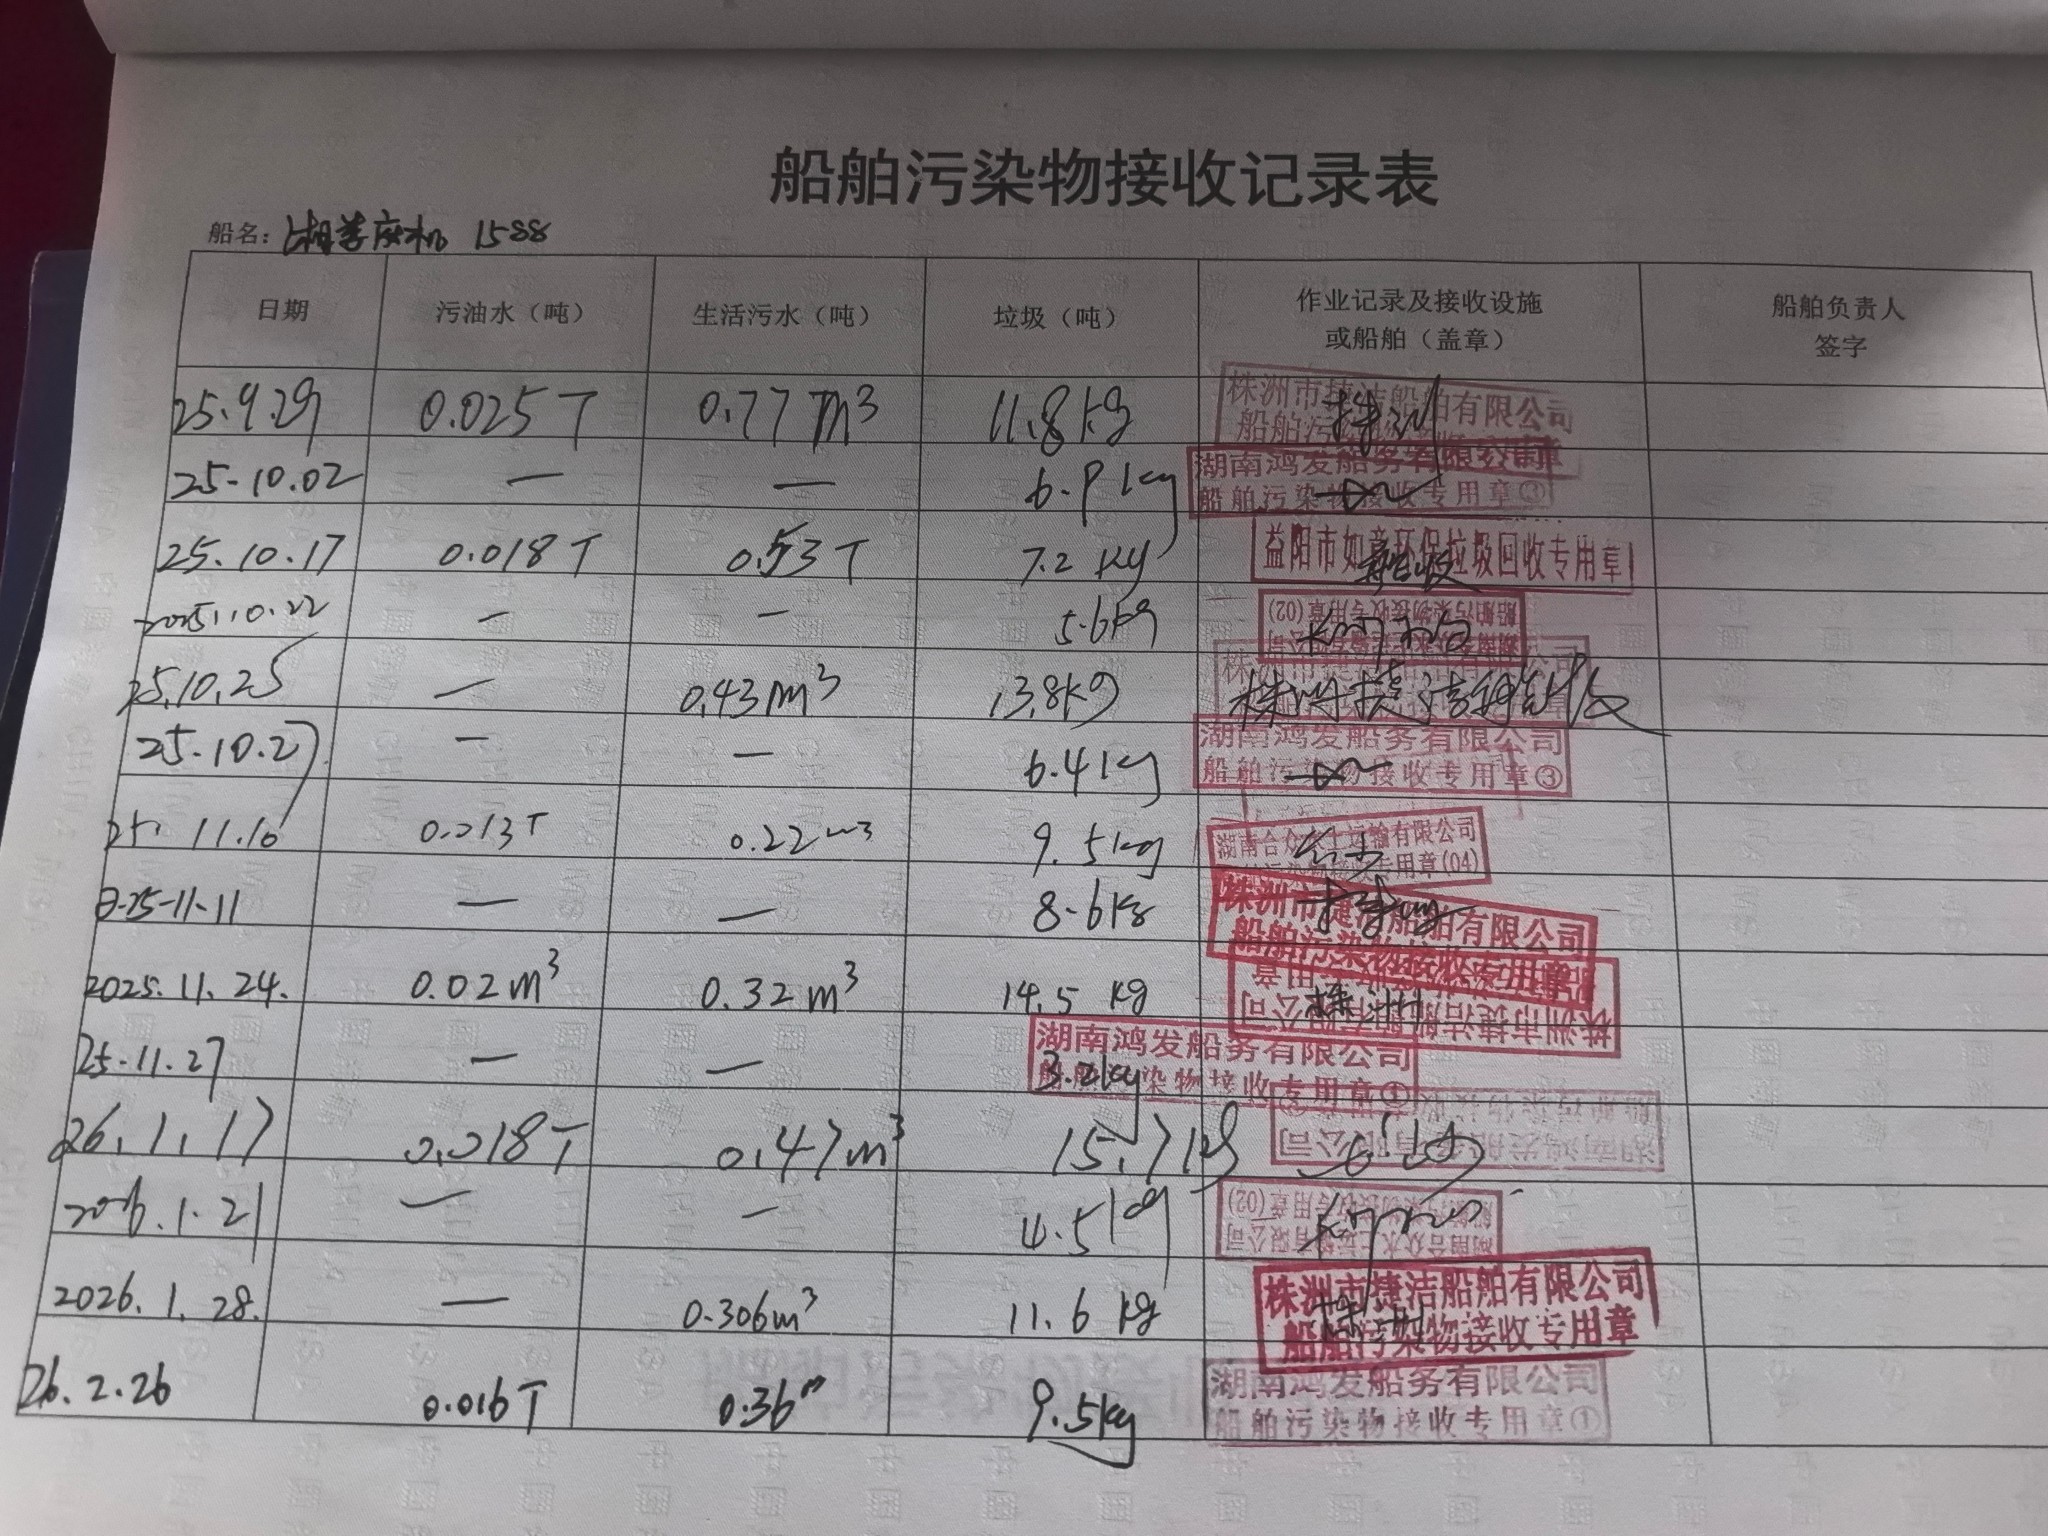 船舶污染物接收记录表
船名: 1588
日期 污油水（吨） 生活污水（吨） 垃圾（吨） 作业记录及接收设施或船舶（盖章） 船舶负责人签字
25.9.29 0.025T 0.77m³ 11.8kg 株洲市捷洁船舶有限公司
25-10.02 — — 6.9kg 湖南鸿发船务有限公司 船舶污染物接收专用章③
25.10.17 0.018T 0.53T 7.2kg 益阳市如意环保垃圾回收专用章
2025.10.22 — — 5.6kg 船舶污染物接收专用章(02)
25.10.25 — 0.43m³ 13.8kg
25-10.27 — — 6.4kg 湖南鸿发船务有限公司 船舶污染物接收专用章③
25.11.10 0.013T 0.22m³ 9.5kg 湖南合众水上运输有限公司 专用章(04)
25-11-11 — — 8.6kg 株洲市捷洁船舶有限公司 船舶污染物接收专用章
2025.11.24. 0.02m³ 0.32m³ 14.5kg 株洲市捷洁船舶有限公司
25-11.27 — — 湖南鸿发船务有限公司 船舶污染物接收专用章①
26.1.17 0.018T 0.47m³ 15.7kg 湖南鸿发船务有限公司
2026.1.21 — — 4.5kg 湖南合众水上运输有限公司 船舶污染物接收专用章(02)
2026.1.28. — 0.306m³ 11.6kg 株洲市捷洁船舶有限公司 船舶污染物接收专用章
26.2.26 0.016T 0.36m 9.5kg 湖南鸿发船务有限公司 船舶污染物接收专用章①